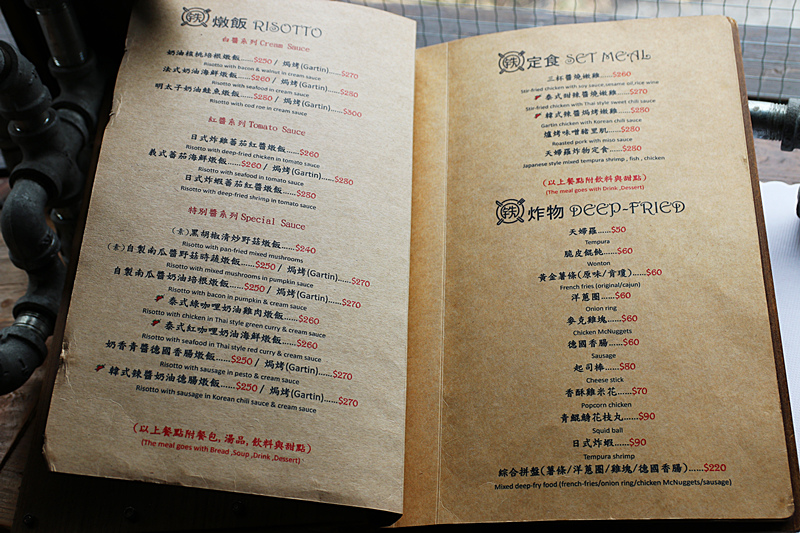 鉄 燉飯 RISOTTO
白醬系列 Cream Sauce
奶油核桃培根燉飯......$250 / 焗烤(Gartin)......$270
Risotto with bacon & walnut in cream sauce
法式奶油海鮮燉飯......$260 / 焗烤(Gartin)......$280
Risotto with seafood in cream sauce
明太子奶油鮭魚燉飯......$280 / 焗烤(Gartin)......$300
Risotto with cod roe in cream sauce
紅醬系列 Tomato Sauce
日式炸雞蕃茄紅醬燉飯......$260
Risotto with deep-fried chicken in tomato sauce
義式蕃茄海鮮燉飯......$260 / 焗烤(Gartin)......$280
Risotto with seafood in tomato sauce
日式炸蝦蕃茄紅醬燉飯......$280
Risotto with deep-fried shrimp in tomato sauce
特別醬系列 Special Sauce
(素)黑胡椒清炒野菇燉飯......$240
Risotto with pan-fried mixed mushrooms
(素)自製南瓜醬野菇時蔬燉飯......$250 / 焗烤(Gartin)......$270
Risotto with mixed mushrooms in pumpkin sauce
自製南瓜醬奶油培根燉飯......$250 / 焗烤(Gartin)......$270
Risotto with bacon in pumpkin & cream sauce
泰式綠咖哩奶油雞肉燉飯......$260
Risotto with chicken in Thai style green curry & cream sauce
泰式紅咖哩奶油海鮮燉飯......$260
Risotto with seafood in Thai style red curry & cream sauce
奶香青醬德國香腸燉飯......$250 / 焗烤(Gartin)......$270
Risotto with sausage in pesto & cream sauce
韓式辣醬奶油德腸燉飯......$250 / 焗烤(Gartin)......$270
Risotto with sausage in Korean chili sauce & cream sauce
(以上餐點附餐包,湯品,飲料與甜點)
(The meal goes with Bread ,Soup ,Drink ,Dessert)
鉄 定食 SET MEAL
三杯醬燒嫩雞......$260
Stir-fried chicken with soy sauce,sesame oil,rice wine
泰式甜辣醬燒嫩雞......$270
Stir-fried chicken with Thai style sweet chili sauce
韓式辣醬焗烤嫩雞......$280
Gartin chicken with Korean chili sauce
爐烤味噌豬里肌......$280
Roasted pork with miso sauce
天婦羅炸物定食......$280
Japanese style mixed tempura shrimp , fish , chicken
(以上餐點附飲料與甜點)
(The meal goes with Drink ,Dessert)
鉄 炸物 DEEP-FRIED
天婦羅......$50
Tempura
脆皮餛飩......$60
Wonton
黃金薯條(原味/肯瓊)......$60
French fries (original/cajun)
洋蔥圈......$60
Onion ring
麥克雞塊......$60
Chicken McNuggets
德國香腸......$60
Sausage
起司棒......$80
Cheese stick
香酥雞米花......$70
Popcorn chicken
青鯤鯓花枝丸......$90
Squid ball
日式炸蝦......$90
Tempura shrimp
綜合拼盤(薯條/洋蔥圈/雞塊/德國香腸)......$220
Mixed deep-fry food (french-fries/onion ring/chicken McNuggets/sausage)